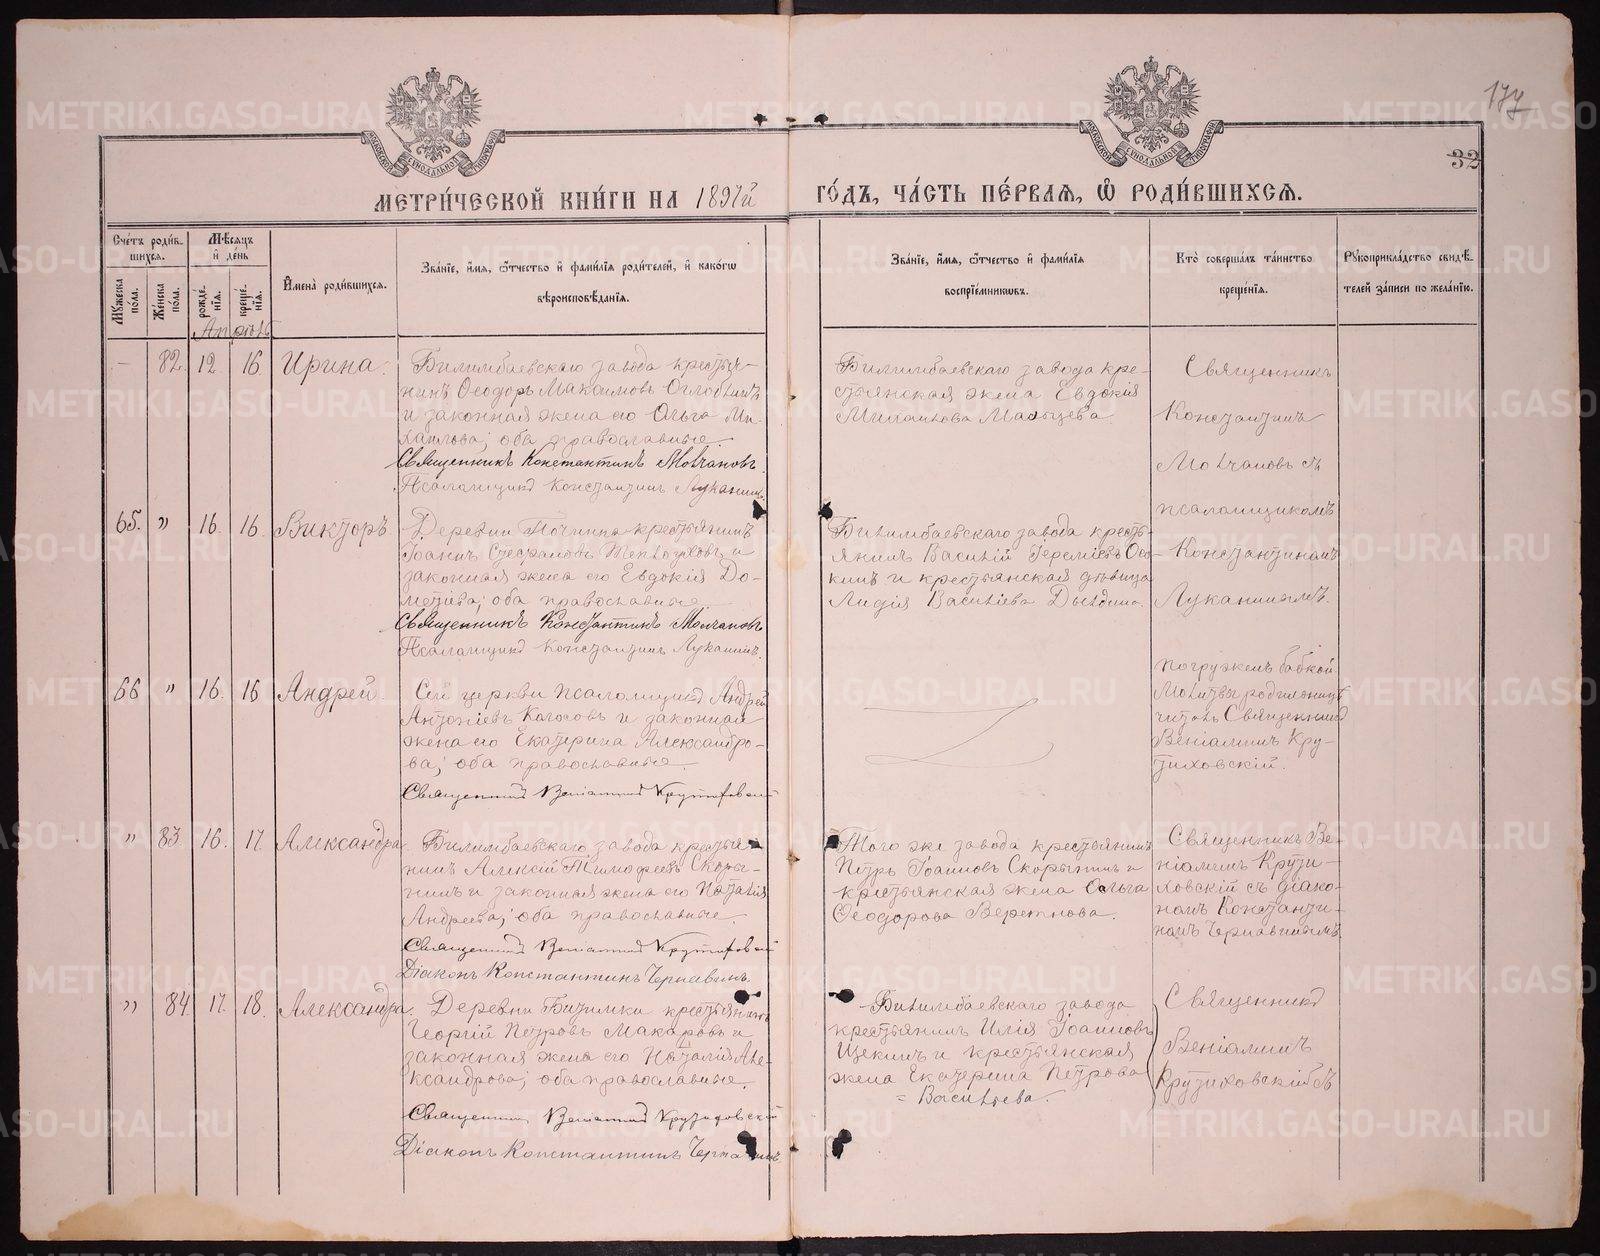 177
32
МЕТРИ́ЧЕСКОЙ КНИ́ГИ НА 1897й ГО́ДЪ, ЧА́СТЬ ПЕ́РВАЯ, Ѡ РОДИ́ВШИХСЯ.
Сче́тъ роди́вшихся.
Мѣ́сяцъ и҆ де́нь
И҆мена̀ роди́вшихся.
Зва́нїе, и҆́мя, ѻ҆́тчество и҆ фами́лїя роди́телей, и҆ како́гѡ
вѣроисповѣ́данїя.
Зва́нїе, и҆́мя, ѻ҆́тчество и҆ фами́лїя
воспрїе́мниковъ.
Кто̀ соверша́лъ та́инство
креще́нїя.
Рꙋкоприкла́дство свидѣ́-
телей за́писи по жела́нїю.
Мꙋ́жеска по́ла.
Же́нска по́ла.
рожде́нїя.
креще́нїя.
Апрѣль
— 82. 12. 16. Ирина.
Билимбаевскаго завода крестья-
нинъ Ѳеодоръ Максимовъ Оглоблинъ
и законная жена его Ольга Ми-
хаилова; оба православные.
Священникъ Константинъ Молчановъ
Псаломщикъ Константинъ Луканинъ.
Билимбаевскаго завода кре-
стьянская жена Евдокія
Михаилова Мальцева.
Священникъ
Константинъ
Молчановъ съ
псаломщикомъ
Константиномъ
Луканинымъ.
65. " 16. 16. Викторъ.
Деревни Починка крестьянинъ
Іоаннъ Теплоуховъ и
законная жена его Евдокія До-
метіева; оба православные.
Священникъ Константинъ Молчановъ
Псаломщикъ Константинъ Луканинъ.
Билимбаевскаго завода кресть-
янинъ Василій Іереміевъ Осо-
кинъ и крестьянская дѣвица
Лидія Васильева Дылдина.
66 " 16. 16 Андрей.
Сей церкви псаломщикъ Андрей
Антоніевъ Колосовъ и законная
жена его Екатерина Александро-
ва; оба православные.
Священникъ Веніаминъ Крутиховскій
погруженъ бабкой.
Молитвы родильницѣ
читалъ Священникъ
Веніаминъ Кру-
тиховскій.
" 83. 16. 17. Александра.
Билимбаевскаго завода крестья-
нинъ Алексій Тимофеевъ Скоры-
нинъ и законная жена его Наталія
Андреева; оба православные.
Священникъ Веніаминъ Крутиховскій
Діаконъ Константинъ Чернавинъ.
Того же завода крестьянинъ
Петръ Іоанновъ Скорынинъ и
крестьянская жена Ольга
Ѳеодорова Веретнова.
Священникъ Ве-
ніаминъ Крути-
ховскій съ діако-
номъ Константи-
номъ Чернавинымъ.
" 84. 17. 18. Александра.
Деревни Битимки крестьянинъ
Георгій Петровъ Макаровъ и
законная жена его Наталія Але-
ксандрова; оба православные.
Священникъ Веніаминъ Крутиховскій
Діаконъ Константинъ
Билимбаевскаго завода
крестьянинъ Илія Іоанновъ
Щекинъ и крестьянская
жена Екатерина Петрова
= Васильева.
Священникъ
Веніаминъ
Крутиховскій съ